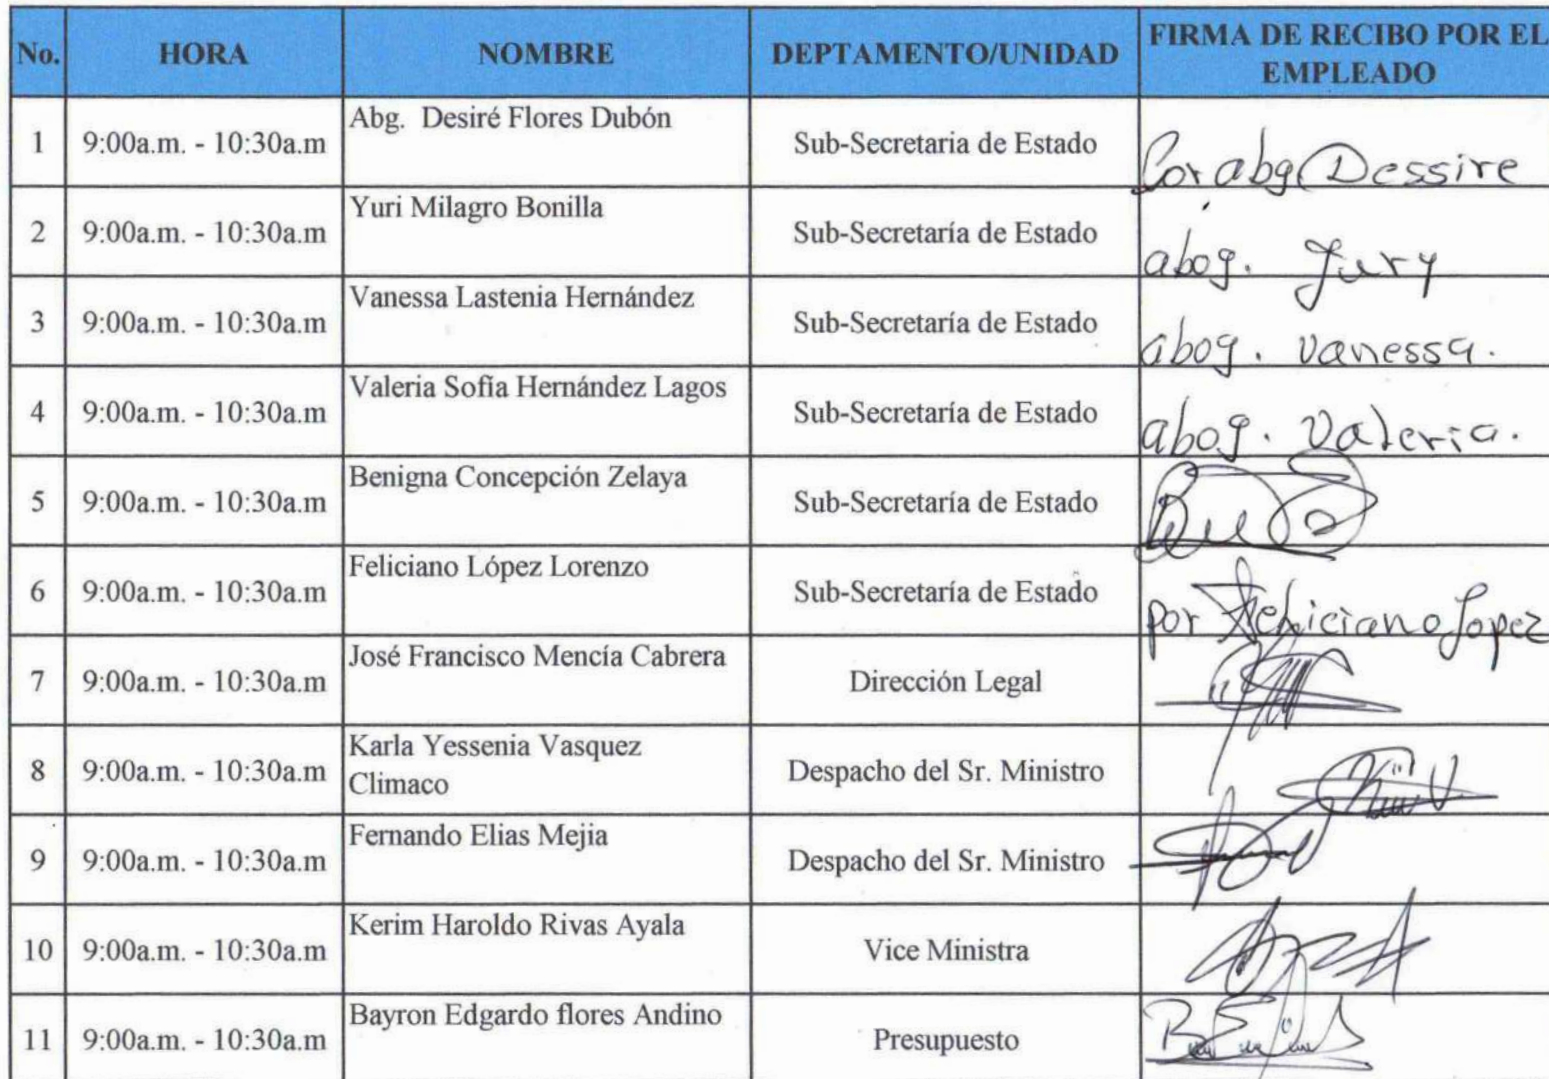 No. HORA NOMBRE DEPTAMENTO/UNIDAD FIRMA DE RECIBO POR EL
EMPLEADO
1 9:00a.m. - 10:30a.m Abg. Desiré Flores Dubón Sub-Secretaria de Estado Por abg Dessire
2 9:00a.m. - 10:30a.m Yuri Milagro Bonilla Sub-Secretaría de Estado abog. Yury
3 9:00a.m. - 10:30a.m Vanessa Lastenia Hernández Sub-Secretaría de Estado abog. Vanessa.
4 9:00a.m. - 10:30a.m Valeria Sofía Hernández Lagos Sub-Secretaría de Estado abog. Valeria.
5 9:00a.m. - 10:30a.m Benigna Concepción Zelaya Sub-Secretaría de Estado
6 9:00a.m. - 10:30a.m Feliciano López Lorenzo Sub-Secretaría de Estado por Feliciano Lopez
7 9:00a.m. - 10:30a.m José Francisco Mencía Cabrera Dirección Legal
8 9:00a.m. - 10:30a.m Karla Yessenia Vasquez
Climaco Despacho del Sr. Ministro
9 9:00a.m. - 10:30a.m Fernando Elias Mejia Despacho del Sr. Ministro
10 9:00a.m. - 10:30a.m Kerim Haroldo Rivas Ayala Vice Ministra
11 9:00a.m. - 10:30a.m Bayron Edgardo flores Andino Presupuesto